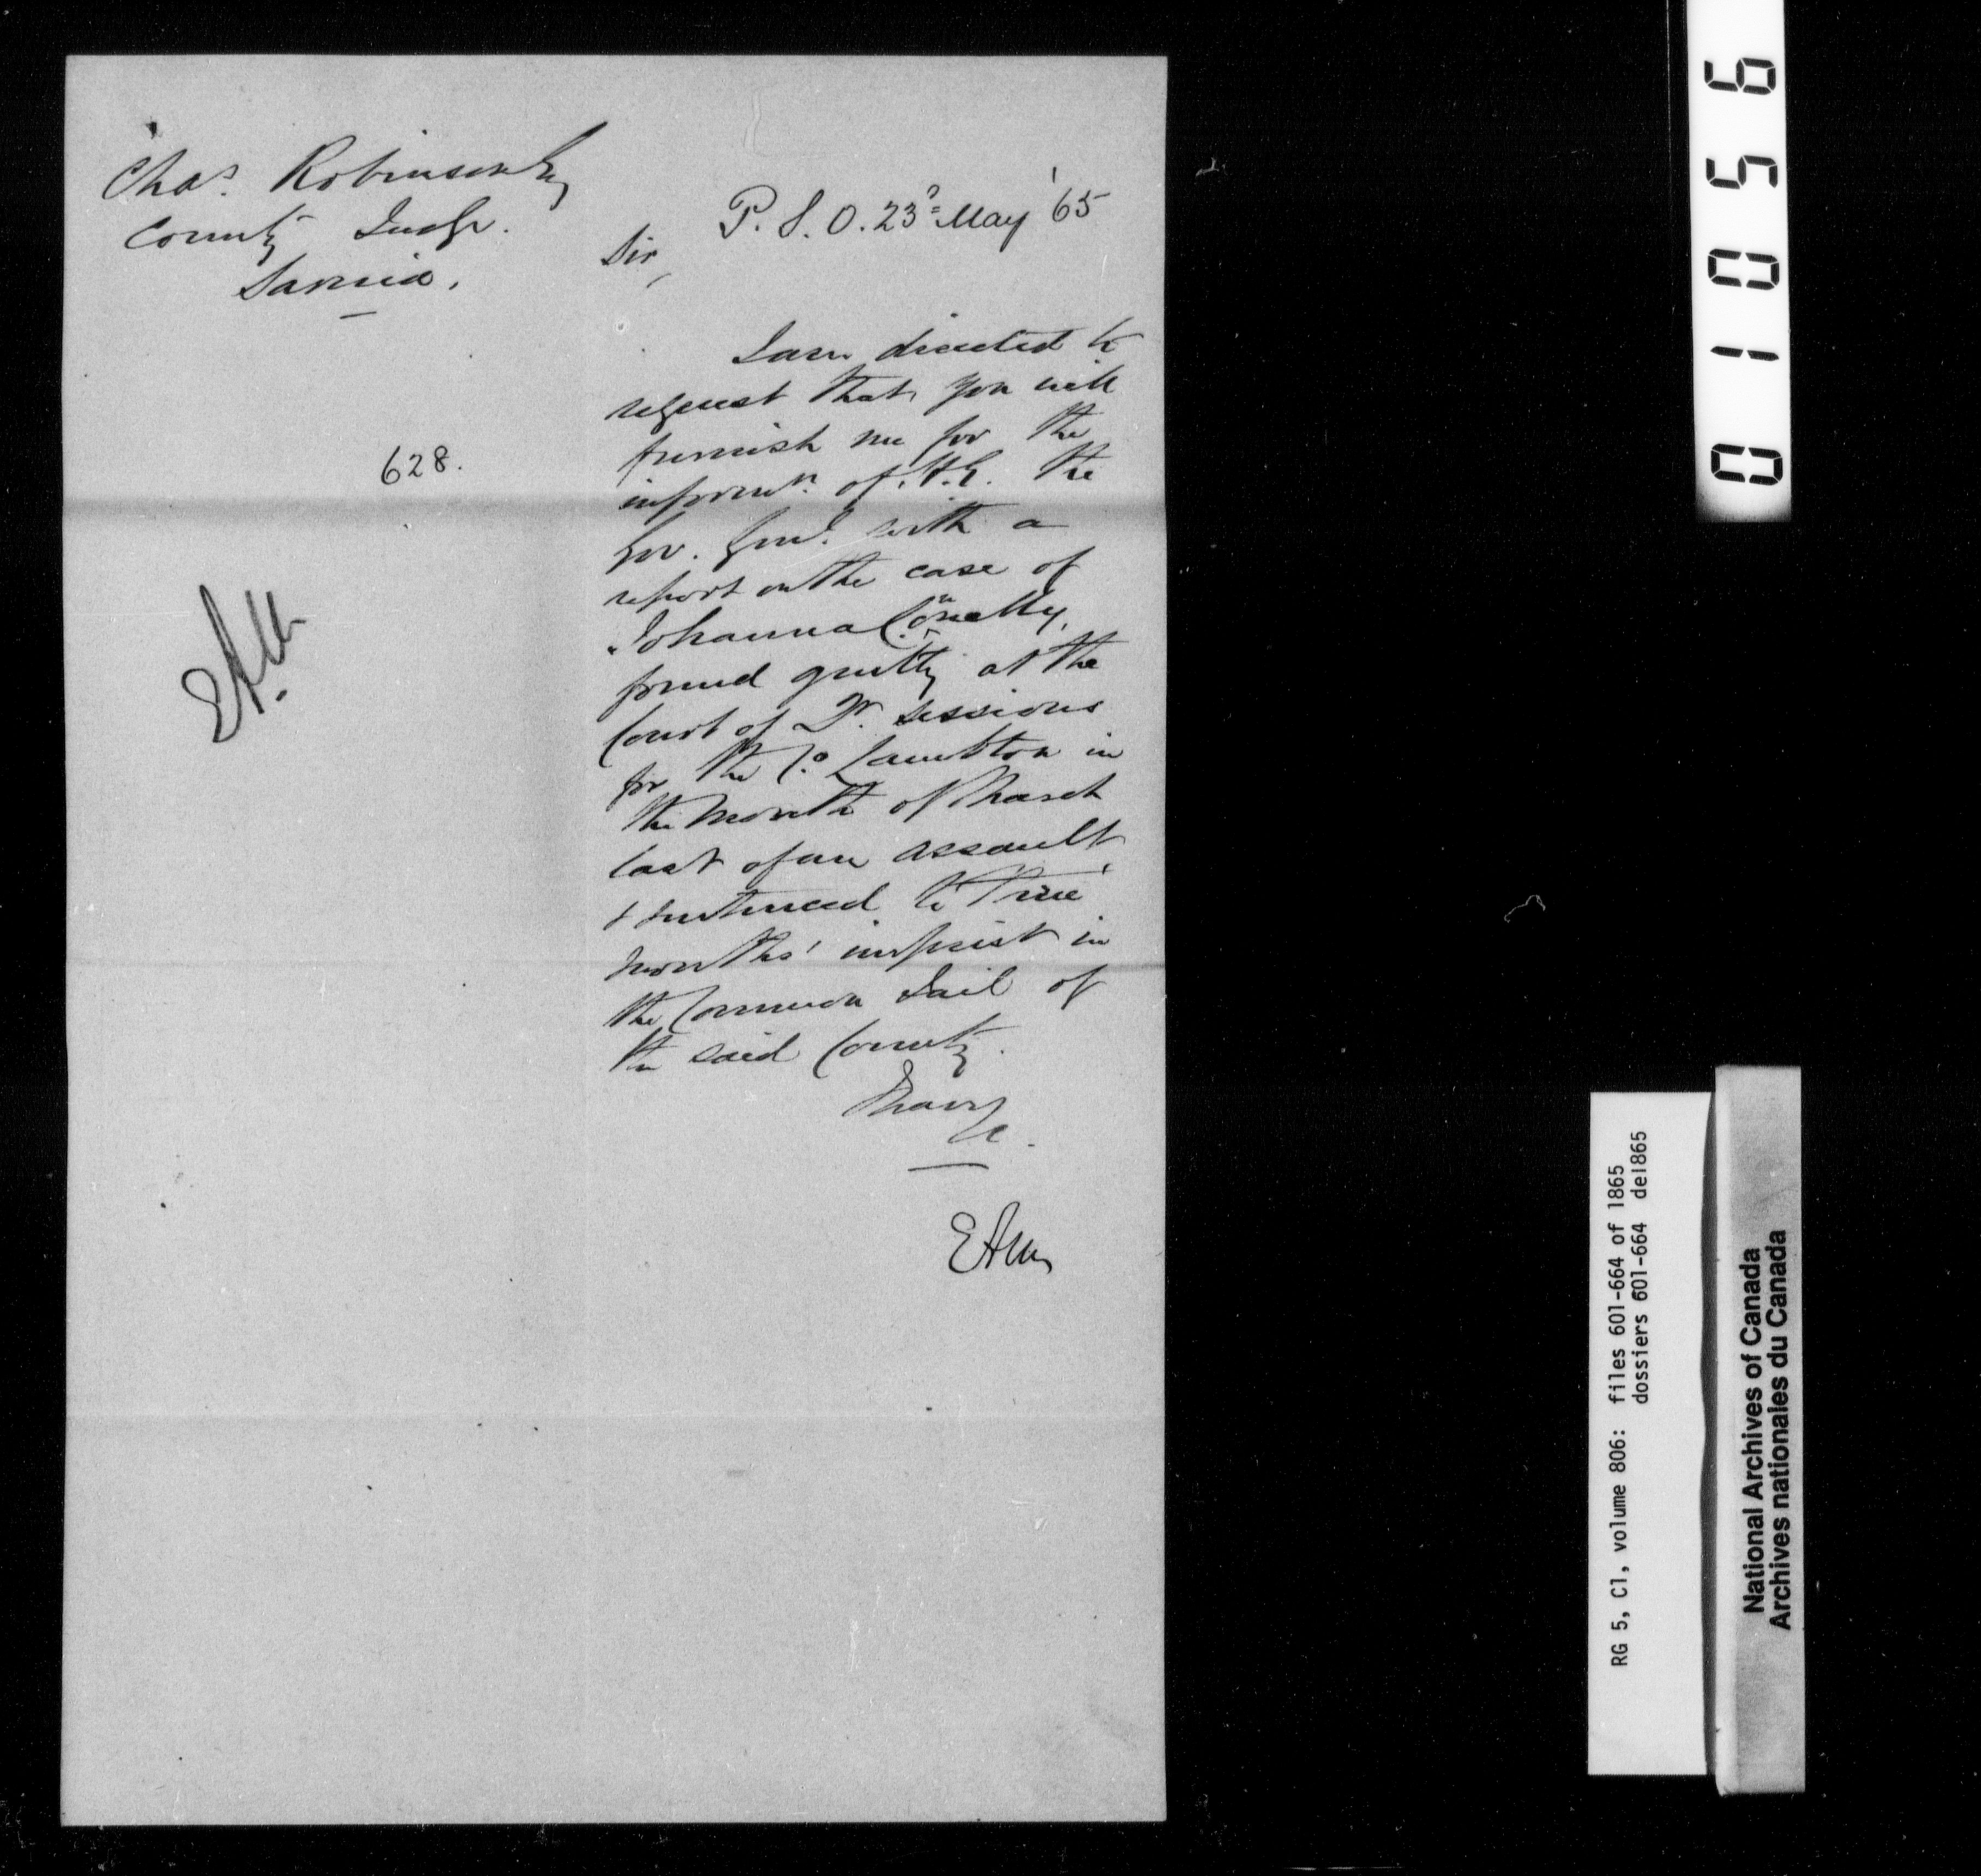 Chas. Robinson Esq
County Judge.
Sarnia.
P.S.O. 23d May '65
Sir,
I am directed to
request that you will
furnish me for the
informn. of H.E. the
Gov. Genl. with a
report on the case of
Johanna Connelly,
found guilty at the
Court of Qr. Sessions
for the Co. Lambton in
the month of March
last of an assault
& sentenced to
months' imprist in
the Common Jail of
the said County.
I have
&c.
EAM
628.
EAM
01056
RG 5, C1, volume 806: files 601-664 of 1865
dossiers 601-664 de1865
National Archives of Canada
Archives nationales du Canada